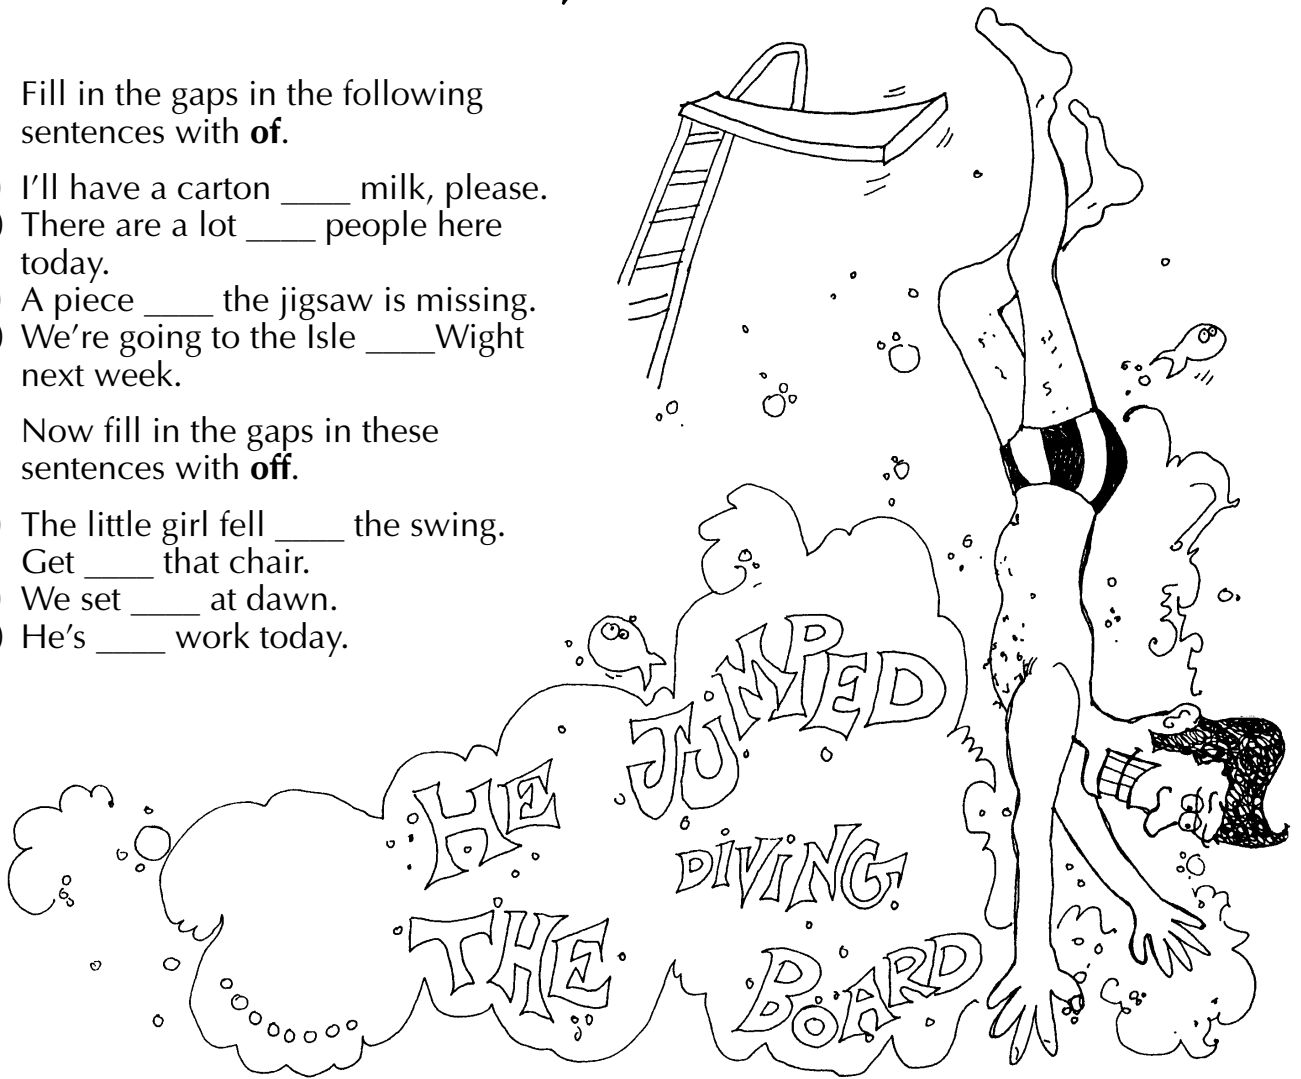 Fill in the gaps in the following
sentences with of.
) I'll have a carton ____ milk, please.
) There are a lot ____ people here
today.
) A piece ____ the jigsaw is missing.
) We're going to the Isle ____Wight
next week.
Now fill in the gaps in these
sentences with off.
) The little girl fell ____ the swing.
Get ____ that chair.
) We set ____ at dawn.
) He's ____ work today.
HE JUMPED
THE DIVING
BOARD